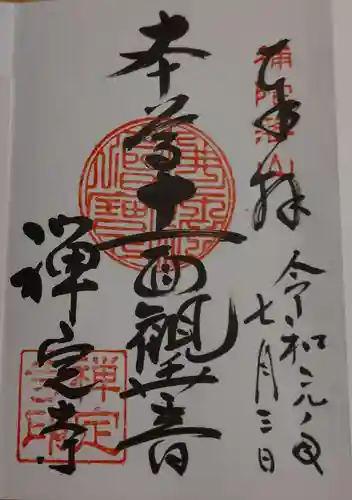 奉拝
令和元年
七月三日
本尊十一面観音
禅定寺
補陀落山
禅定
寺印